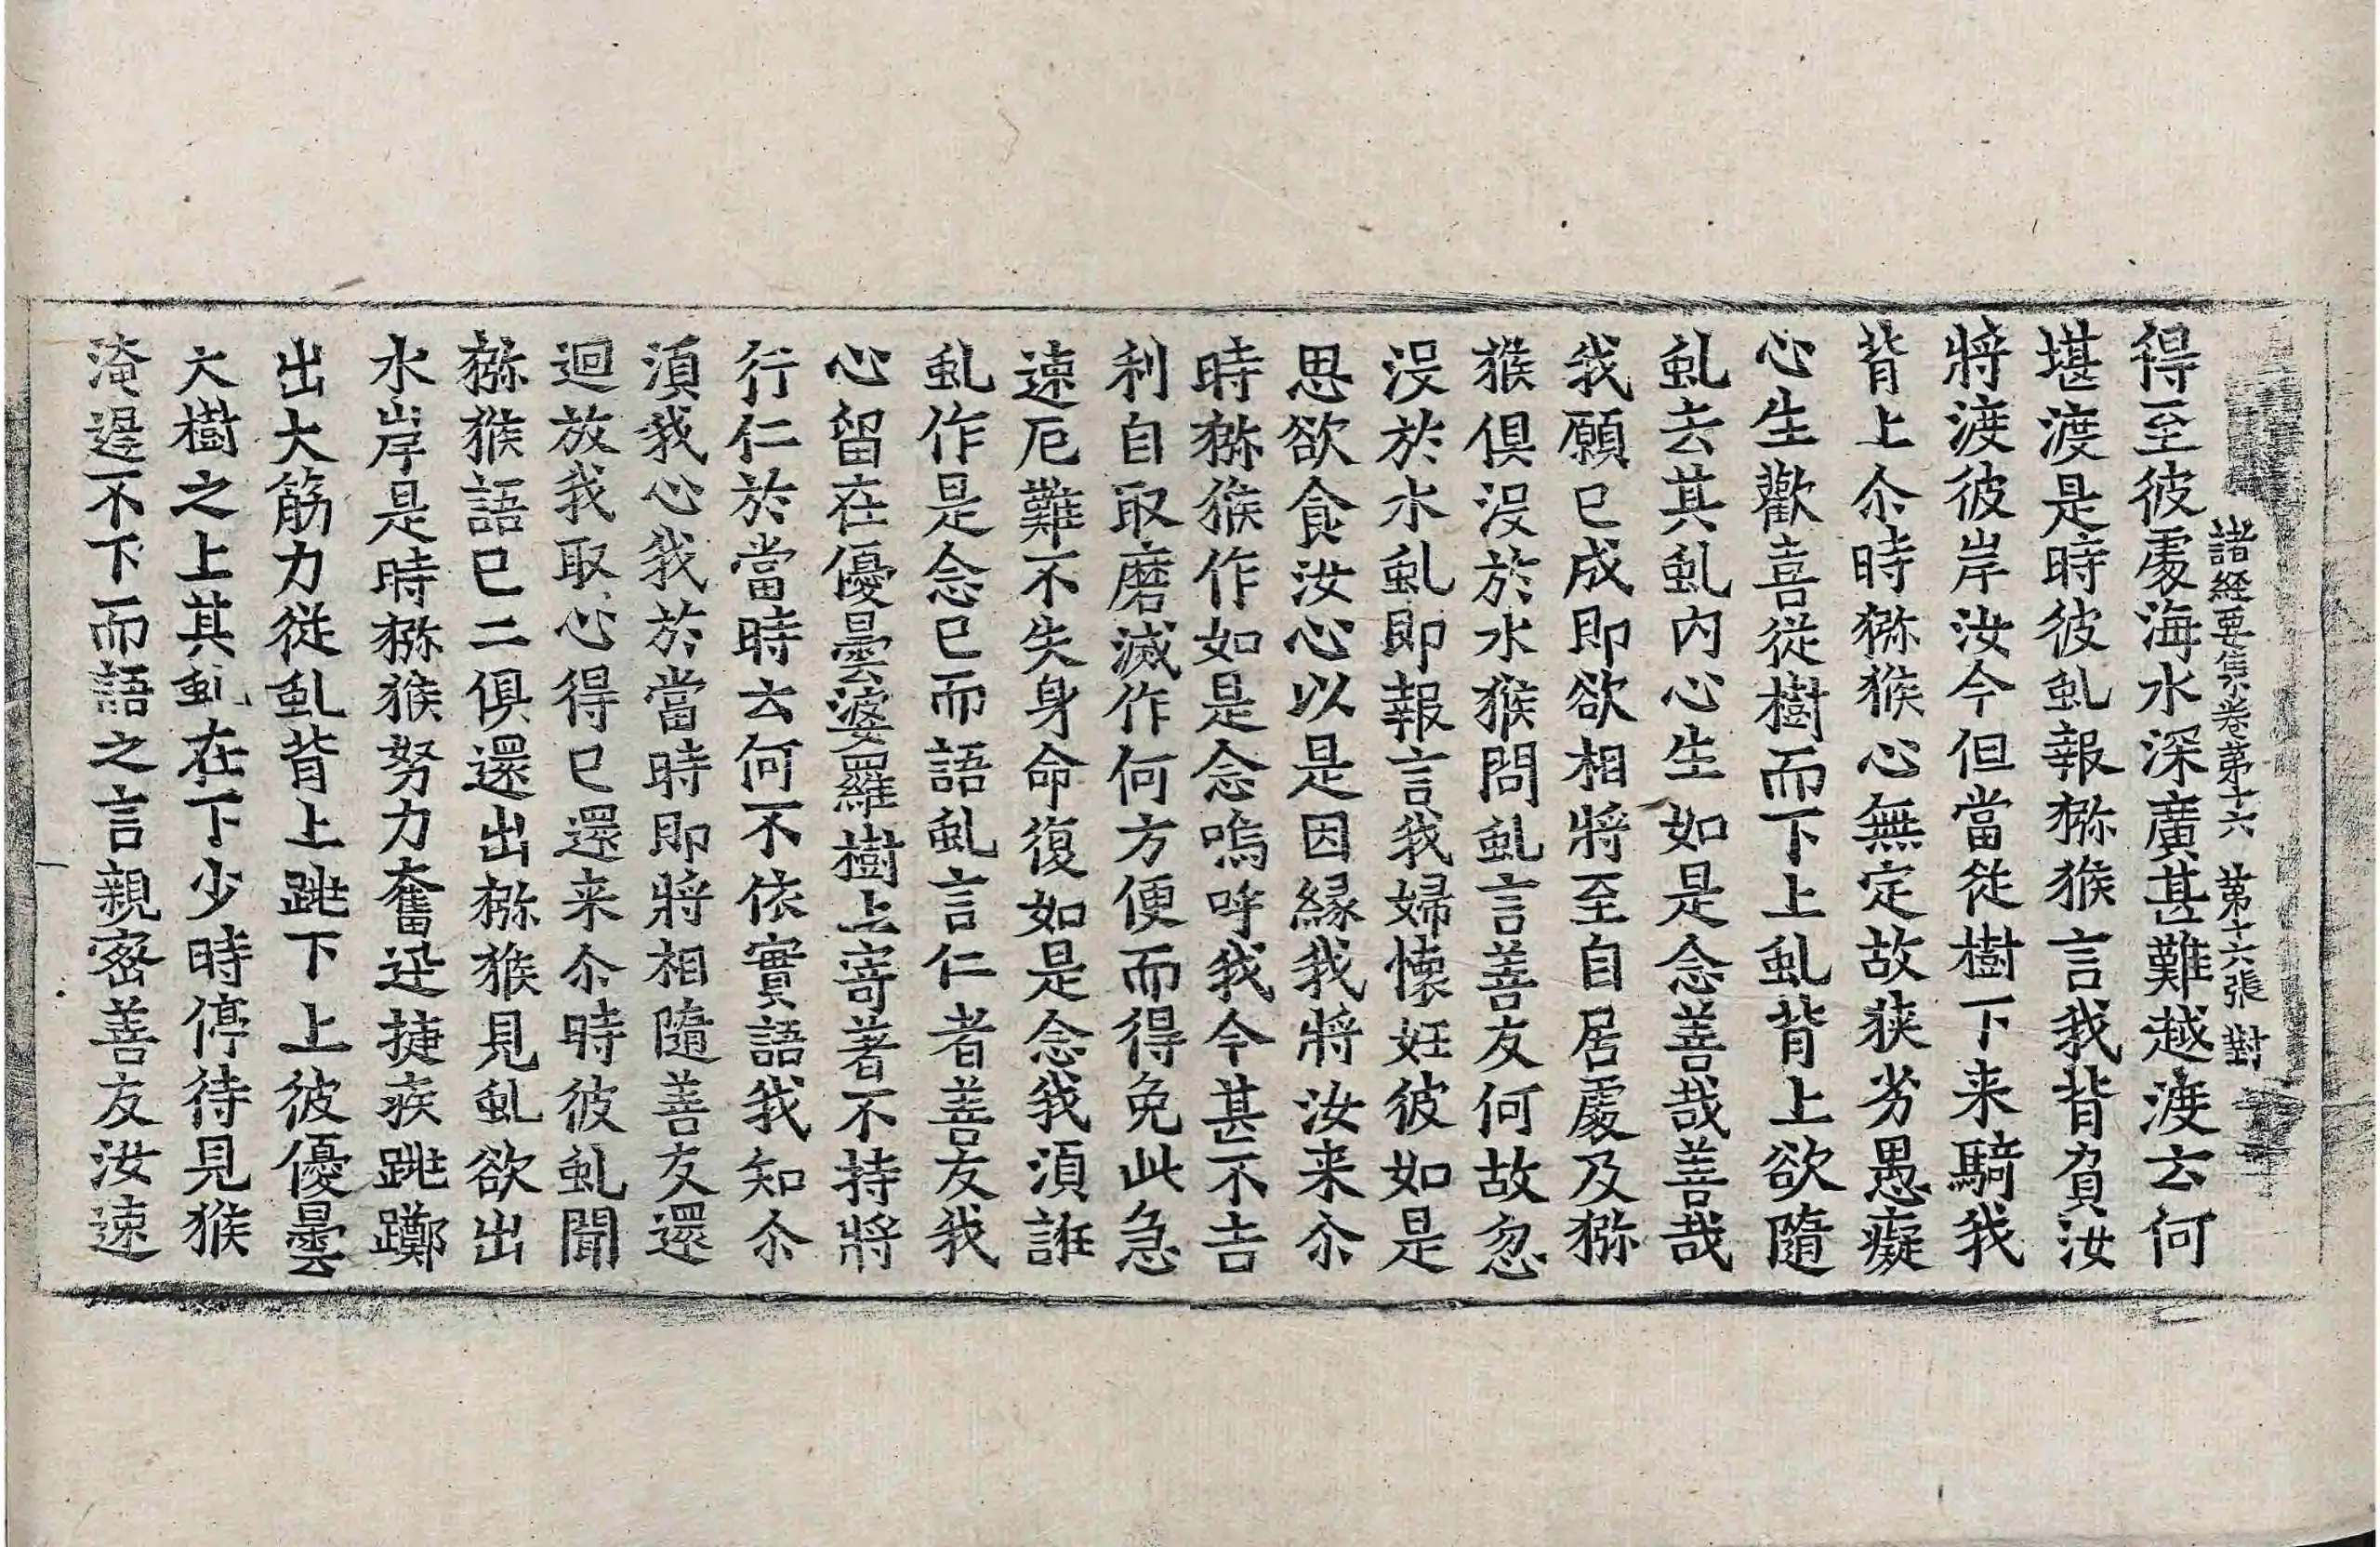 諸經要集卷第十六　第十六張　對
得至彼處海水深廣甚難越渡云何
堪渡是時彼虬報猕猴言我背負汝
將渡彼岸汝今但當從樹下来騎我
背上尒時猕猴心無定故狭劣愚癡
心生歡喜從樹而下上虬背上欲隨
虬去其虬内心生如是念善哉善哉
我願已成即欲相將至自居處及猕
猴俱没於水猴問虬言善友何故忽
没於水虬即報言我婦懷妊彼如是
思欲食汝心以是因縁我將汝来尒
時猕猴作如是念嗚呼我今甚不吉
利自取磨滅作何方便而得免此急
速厄難不失身命復如是念我湏誑
虬作是念已而語虬言仁者善友我
心留在優曇婆羅樹上寄著不持將
行仁於當時云何不依實語我知尒
湏我心我於當時即將相隨善友還
迴放我取心得已還来尒時彼虬聞
猕猴語已二俱還出猕猴見虬欲出
水岸是時猕猴努力奮迅捷疾跳躑
出大筋力從虬背上跳下上彼優曇
大樹之上其虬在下少時停待見猴
淹遲不下而語之言親密善友汝速